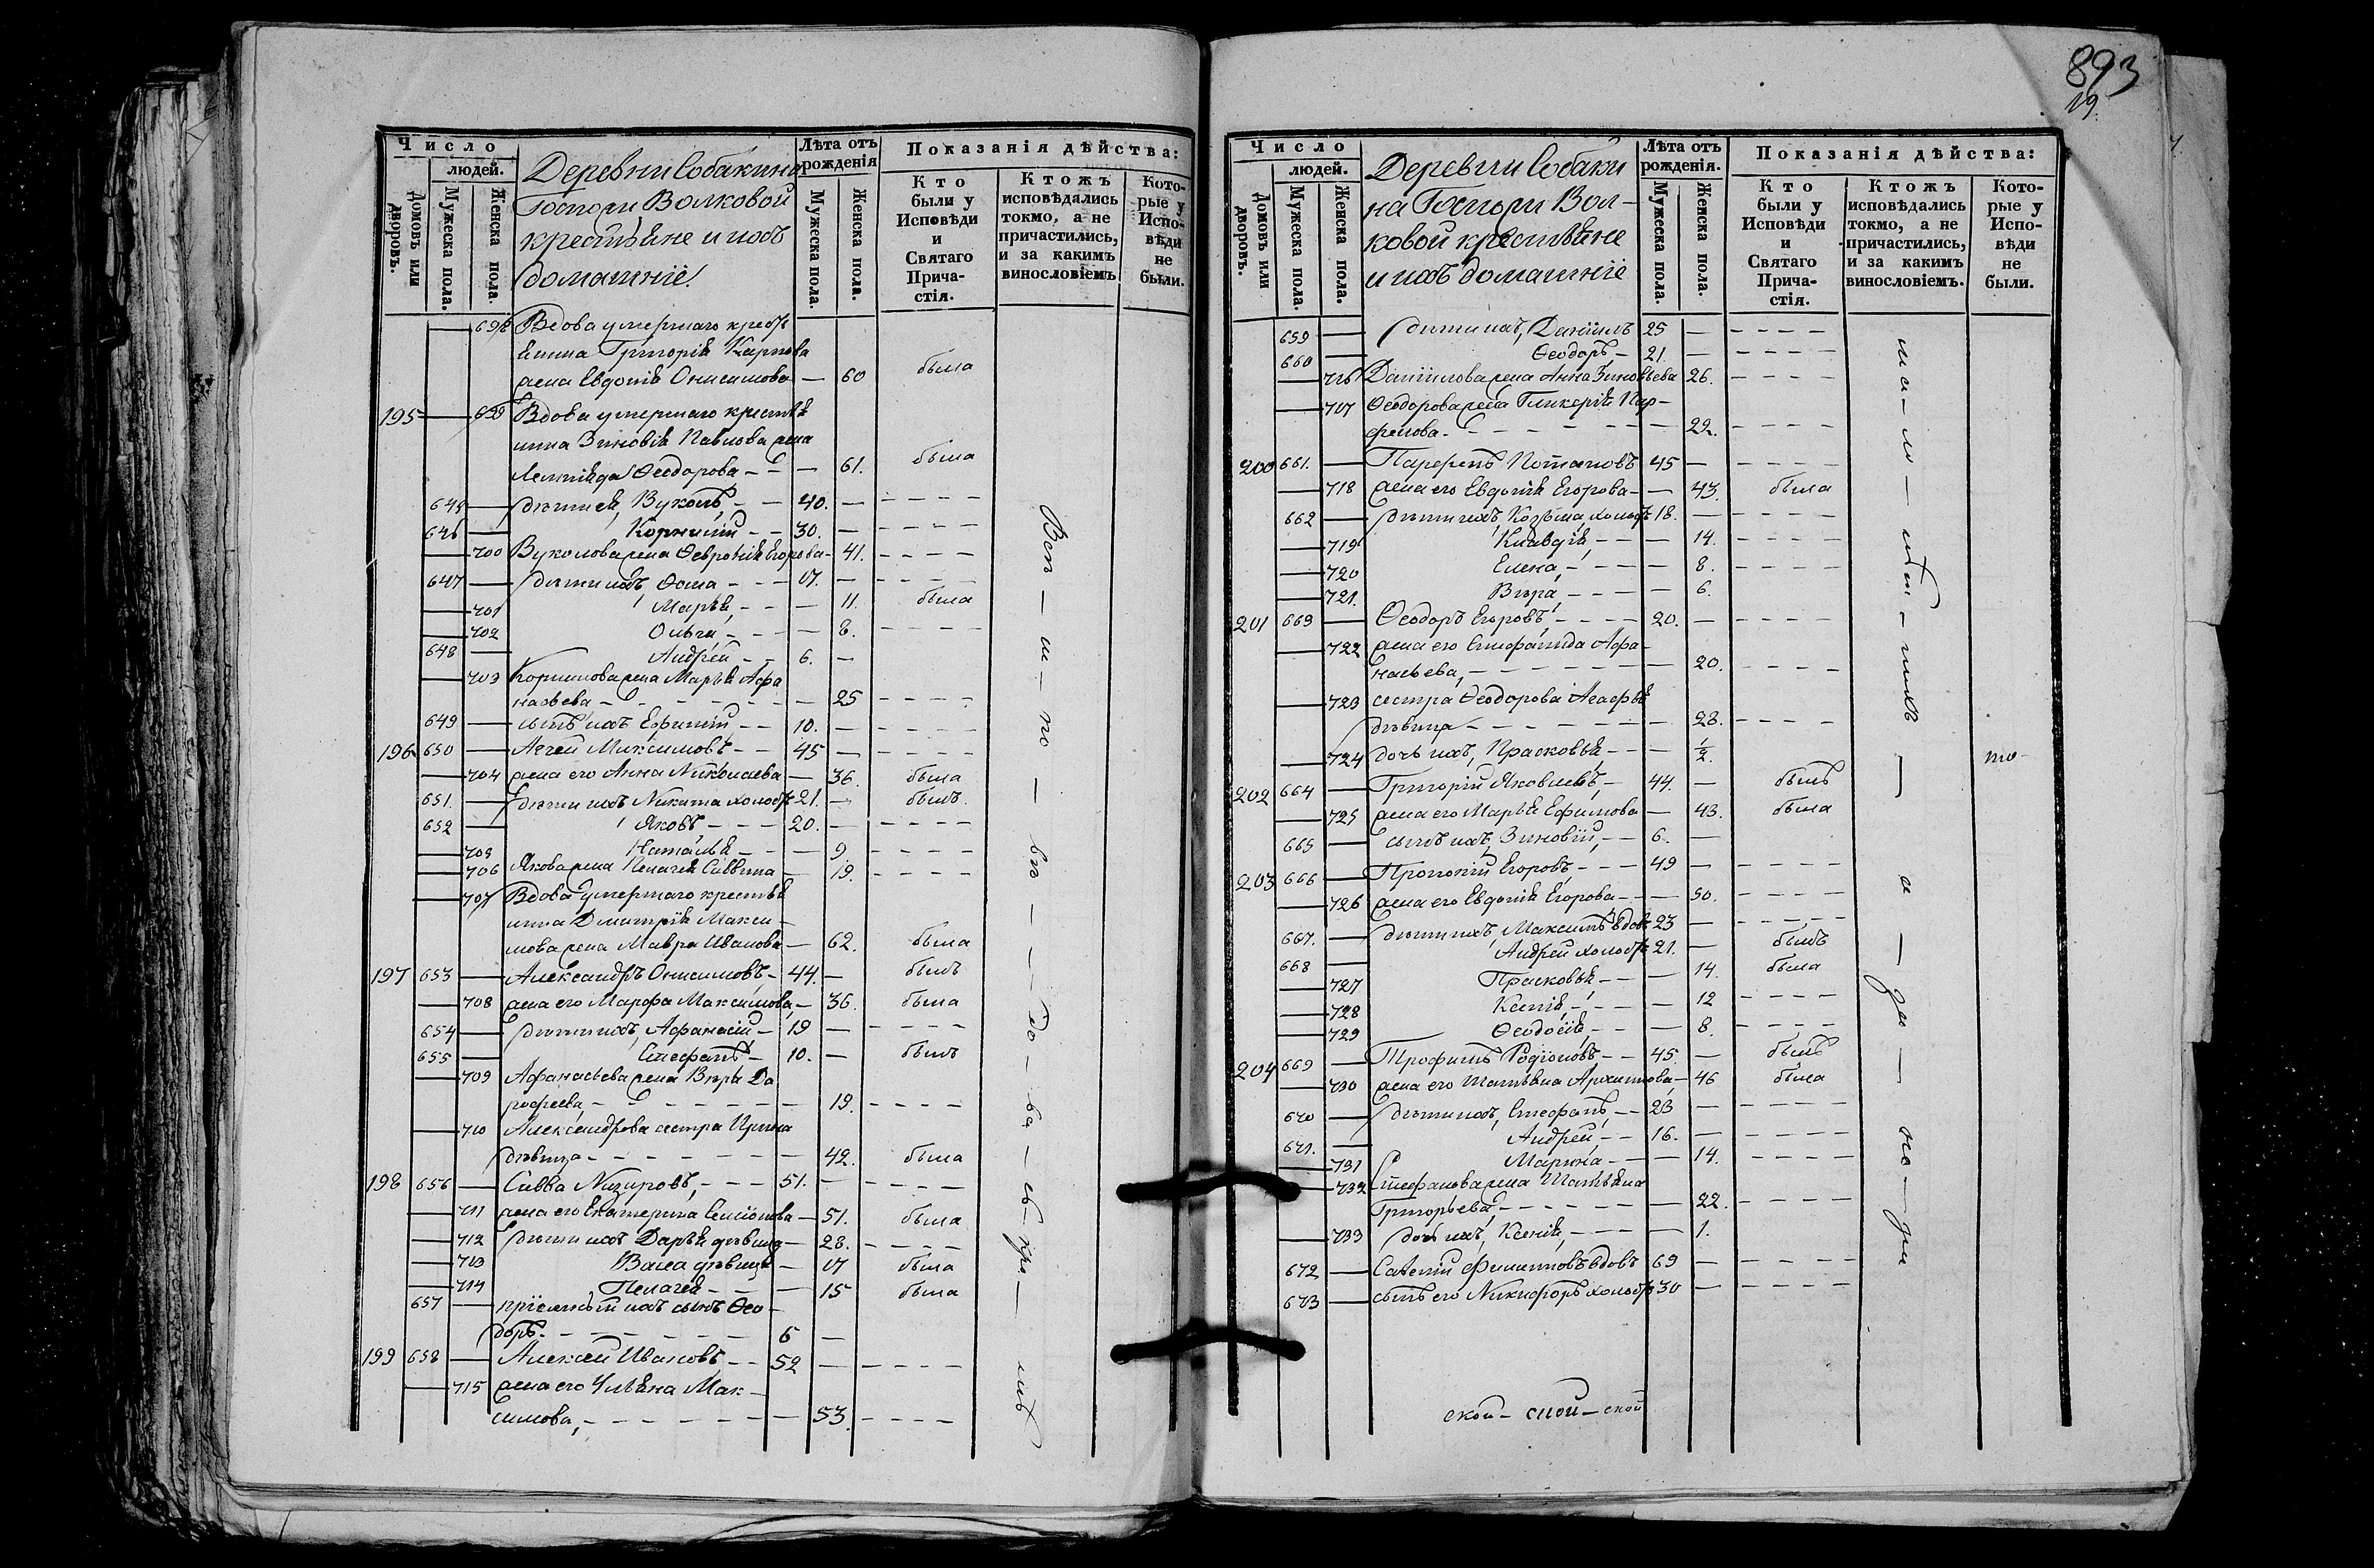 Число
людей.
Домовъ или дворовъ.
Мужеска пола.
Женска пола.
Деревни Собакина
Госпожи Волковой
крестьяне и ихъ
домашніе
Лѣта отъ
рожденія
Мужеска пола.
Женска пола.
Показанія дѣйства:
Кто
были у
Исповѣди
и
Святаго
Прича-
стія.
Ктожъ
исповѣдались
токмо, а не
причастились,
и за какимъ
винословіемъ
Кото-
рые у
Испо-
вѣди
не
были.
698 Вдова умершаго кресть
янина Григорія Карпова
жена Евдокія Онисимова — 60 была
195 — 699 Вдова умершаго крестья
нина Зиновія Павлова жена
Леонида Феодорова — 61. была
645 — дѣти ея, Вуколъ, 40. —
646 — Корнилій 30. —
— 700 Вуколова жена Февронія Егорова 41.
647 — дѣти ихъ Фома 17. —
— 701 Марья, 11. была
— 702 Ольга, 8.
648 — Андрей 6. —
— 703 Корнилова жена Марья Афа
насьева 25
649 — сынъ ихъ Ефимій 10. —
196 650 — Аггей Максимовъ 45 —
— 704 жена его Анна Николаева — 36. была
651. — дѣти ихъ Никита холостъ 21. — былъ
652 — Яковъ, 20. —
— 705 Наталья 9
— 706 Якова жена Пелагея Саввина 19.
— 707 Вдова умершаго крестья
нина Димитрія Макси
мова жена Мавра Иванова — 62. была
197 653 — Александръ Онисимовъ, 44. — былъ
— 708 жена его Марфа Максимова, — 36. была
654 — дѣти ихъ, Афанасій 19 —
655 — Стефанъ 10. — былъ
— 709 Афанасьева жена Вѣра До
рофеева, 19.
— 710 Александрова сестра Ирина
дѣвица 42. была
198 656 — Савва Назаровъ, 51. —
— 711 жена его Екатерина Семіонова — 51. была
— 712 дѣти ихъ Дарья дѣвица — 28.
— 713 Васса дѣвица — 17 была
— 714 Пелагея 15 была
657 — пріемный ихъ сынъ Фео-
доръ 6 —
199 658 — Алексей Ивановъ, 52 —
— 715 жена его Ульяна Мак-
симова, 53
893
19.
Число
людей.
Домовъ или дворовъ.
Мужеска пола.
Женска пола.
Деревни Собаки
на Госпожи Вол-
ковой крестьяне
и ихъ домашніе
Лѣта отъ
рожденія.
Мужеска пола.
Женска пола.
Показанія дѣйства:
Кто
были у
Исповѣди
и
Святаго
Прича-
стія.
Ктожъ
исповѣдались
токмо, а не
причастились,
и за какимъ
винословіемъ.
Кото-
рые у
Испо-
вѣди
не
были.
659 — дѣти ихъ, Даніилъ 25 —
660 — Феодоръ, 21. —
— 716 Даніилова жена Анна Зиновьева 26.
— 717 Феодорова жена Гликерія Пар-
фенова 22.
200 661. — Парфенъ Потаповъ 45 —
— 718 жена его Евдокія Егорова — 43. была
662 — дѣти ихъ, Козьма, холостъ 18. —
— 719 Клавдія, 14.
— 720 Елена, 8.
— 721. Вѣра, 6.
201 663 — Феодоръ Егоровъ, 20. —
— 722 жена его Епифанида Афа-
насьева, 20.
— 723 сестра Феодорова Агафья
дѣвица 28.
— 724 дочь ихъ, Прасковья, 1/2.
то-
202 664 — Григорій Яковлевъ, 44. — былъ
— 725 жена его Марья Ефимова — 43. была
665 — сынъ ихъ, Зиновій, 6. —
203 666 — Прокопій Егоровъ, 49 —
— 726 жена его Евдокія Егорова — 50.
667. — дѣти ихъ, Максимъ вдовъ 23 —
668 — Андрей холостъ 21. — былъ
— 727 Прасковья 14. была
— 728 Ксенія, 12
— 729 Феодосія 8.
204 669 — Трофимъ Родіоновъ 45. — былъ
— 730 жена его Татьяна Архипова, — 46 была
670 — дѣти ихъ, Стефанъ, 23 —
671. — Андрей, 16. —
— 731 Марина 14.
— 732 Стефанова жена Татьяна
Григорьева, 22.
— 733 дочь ихъ, Ксенія, 1.
672 — Савелій Филиповъ вдовъ 69 —
673 — сынъ его Никифоръ холостъ 30 —